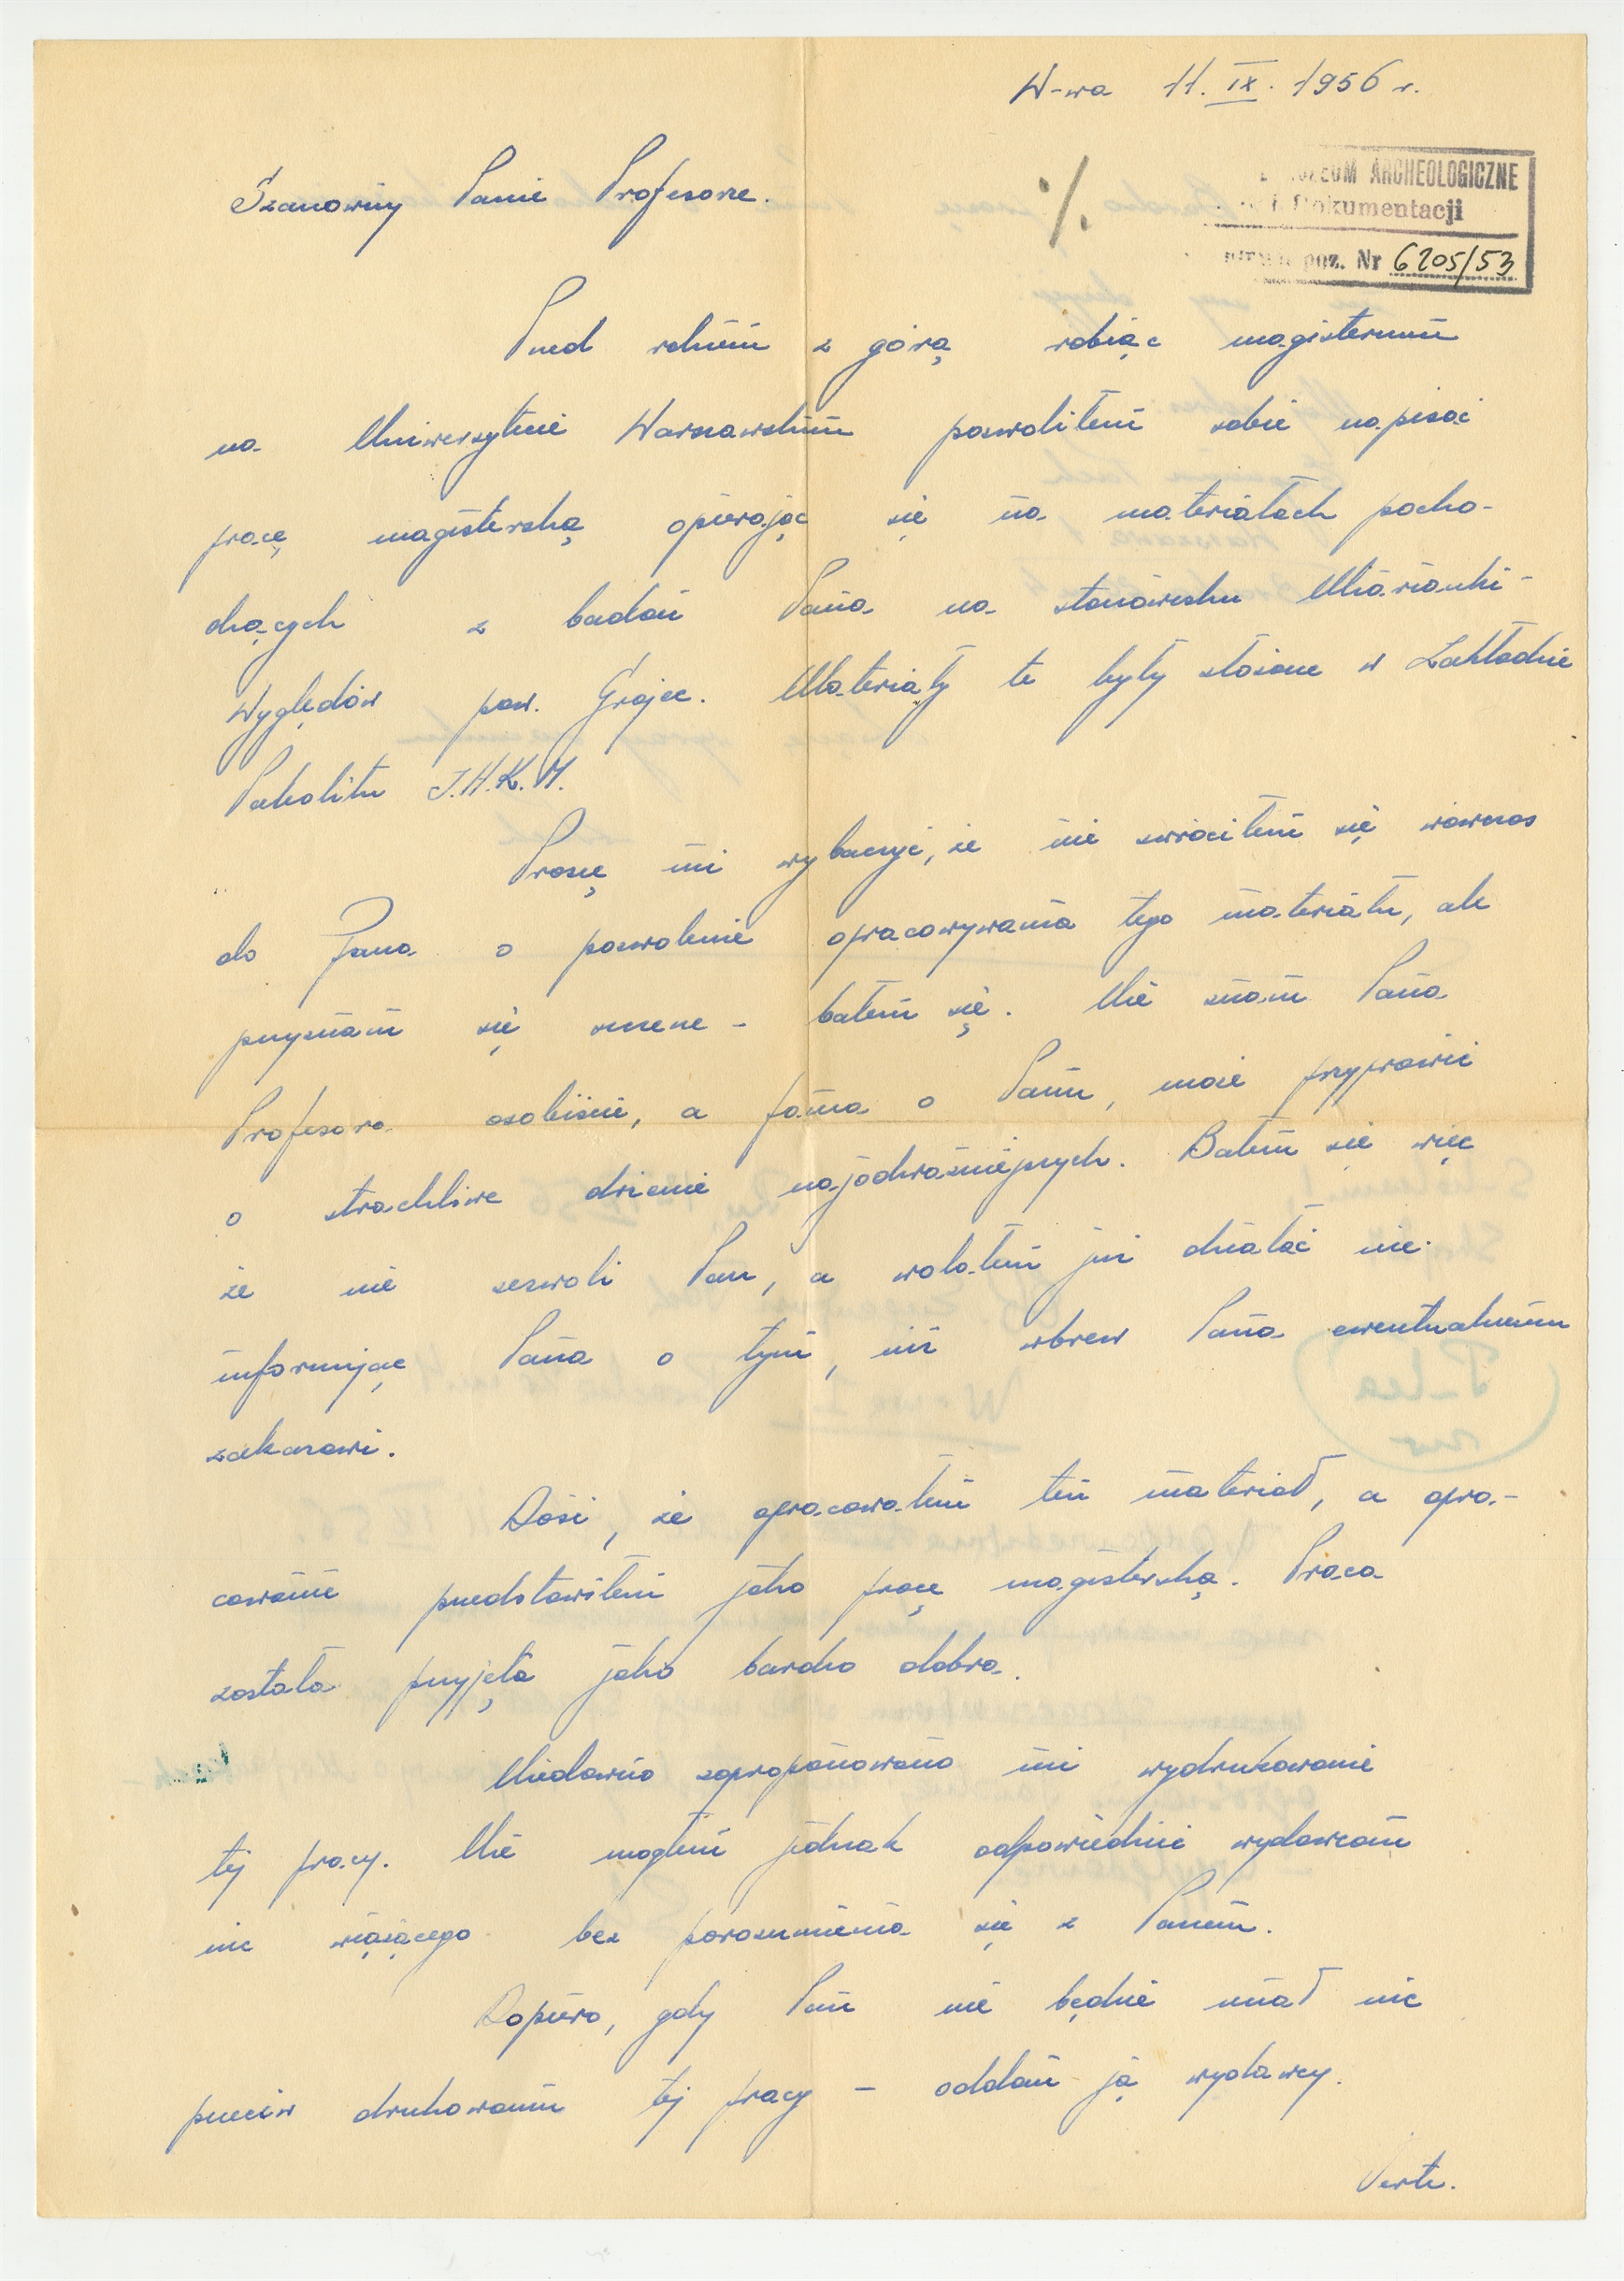 W-wa 11. IX. 1956 r.
MUZEUM ARCHEOLOGICZNE
Dokumentacji
poz. Nr 6205/53
Szanowny Panie Profesorze.
%
Przed rokiem z górą robiąc magisterium
na Uniwersytecie Warszawskim pozwoliłem sobie napisać
pracę magisterską opierając się na materiałach pocho-
dzących z badań Pana na stanowisku Marianki-
Wyględów pow. Grójec. Materiały te były złożone w Zakładzie
Paleolitu I.H.K.M.
Proszę mi wybaczyć, że nie zwróciłem się wówczas
do Pana o pozwolenie opracowywania tego materiału, ale
przyznam się szczerze - bałem się. Nie znam Pana
Profesora osobiście, a fama o Panu, może przyprawić
o strachliwe drżenie najodważniejszych. Bałem się więc
że nie zezwoli Pan, a wolałem już działać nie
informując Pana o tym, niż wbrew Pana ewentualnemu
zakazowi.
Dość, że opracowałem ten materiał, a opra-
cowanie przedstawiłem jako pracę magisterską. Praca
została przyjęta jako bardzo dobra.
Niedawno zaproponowano mi wydrukowanie
tej pracy. Nie mogłem jednak odpowiedzieć wydawcom
nic wiążącego bez porozumienia się z Panem.
Dopiero, gdy Pan nie będzie miał nic
przeciw drukowaniu tej pracy - oddam ją wydawcy.
Verte.